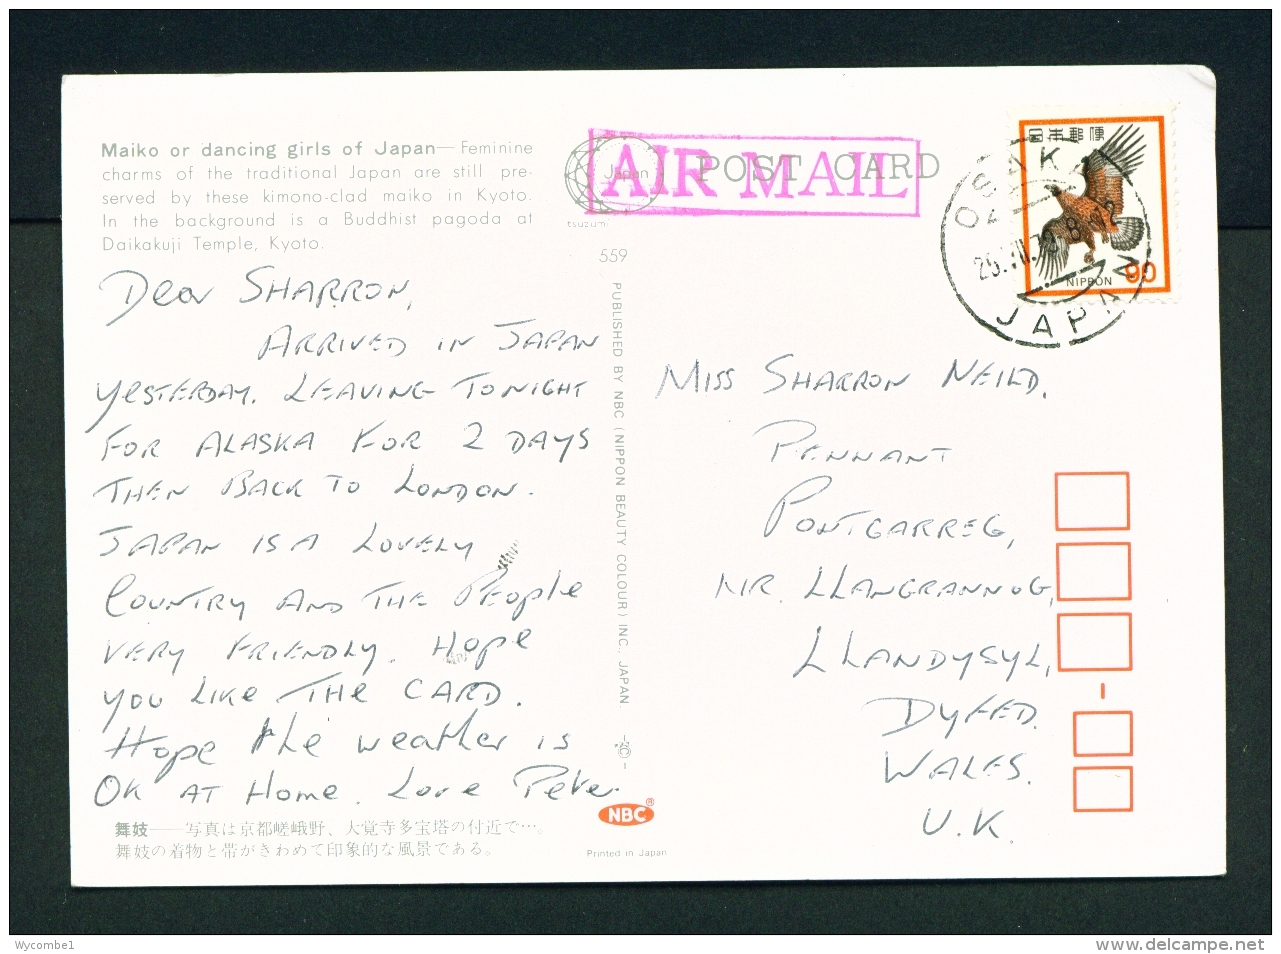 Maiko or dancing girls of Japan—Feminine
charms of the traditional Japan are still pre-
served by these kimono-clad maiko in Kyoto.
In the background is a Buddhist pagoda at
Daikakuji Temple, Kyoto.
Dear SHARRON,
ARRIVED IN JAPAN
YESTERDAY. LEAVING TONIGHT
FOR ALASKA FOR 2 DAYS
THEN BACK TO LONDON.
JAPAN IS A LOVELY
COUNTRY AND THE PEOPle
VERY FRIENDLY. HOPe
YOU LIKE THE CARD.
HOPe the weather is
OK AT Home. Love Pete.
舞妓——写真は京都嵯峨野、大覚寺多宝塔の付近で…。
舞妓の着物と帯がきわめて印象的な風景である。
Japan
tsuzumi
POST CARD
AIR MAIL
559
PUBLISHED BY NBC (NIPPON BEAUTY COLOUR) INC. JAPAN.
NBC®
Printed in Japan
日本郵便
NIPPON
90
OSAKA
JAPAN
MISS SHARRON NEILD.
PENNANT
PONTGARREG,
NR. LLANGRANNOG,
LLANDYSYL,
DYFED.
WALES.
U.K.
Wycombe1
www.delcampe.net